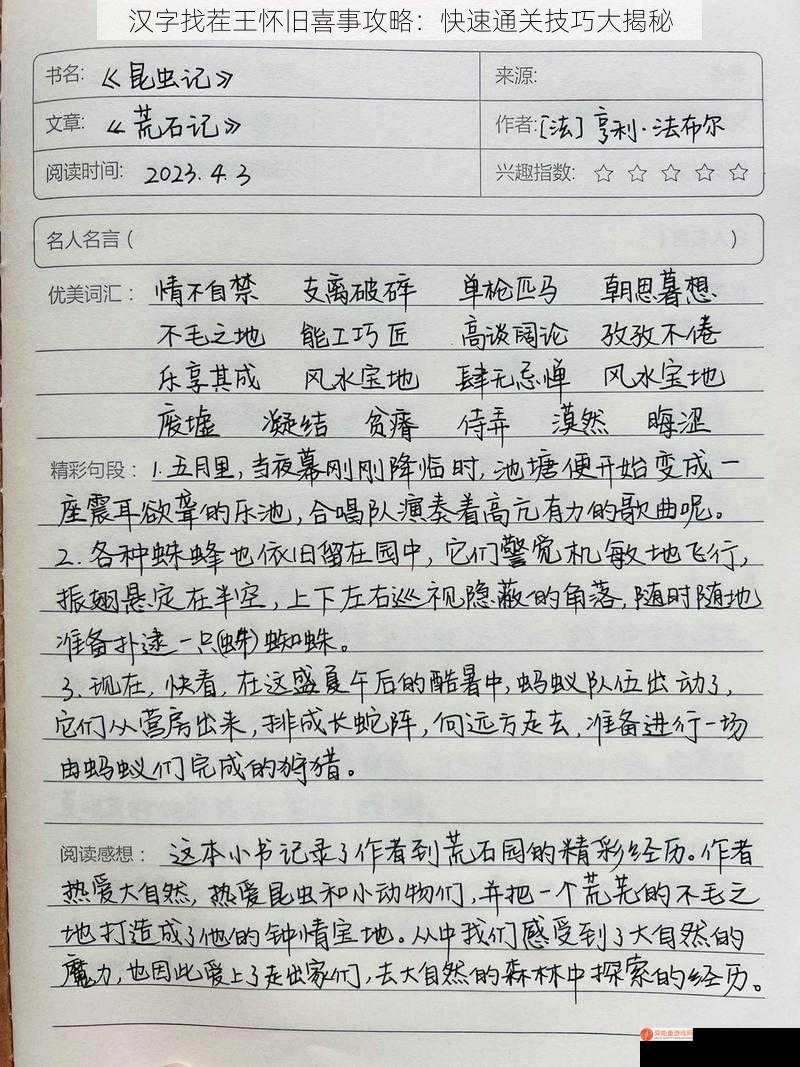 汉字找茬王怀旧喜事攻略：快速通关技巧大揭秘
书名:《昆虫记》 来源:
文章:《荒石记》 作者:[法]亨利·法布尔
阅读时间: 2023.4.3 兴趣指数: ☆ ☆ ☆ ☆ ☆
名人名言（ ）
优美词汇： 情不自禁 支离破碎 单枪匹马 朝思暮想
不毛之地 能工巧匠 高谈阔论 孜孜不倦
乐享其成 风水宝地 肆无忌惮 风水宝地
废墟 凝结 贫瘠 侍弄 漠然 晦涩
精彩句段：1.五月里,当夜幕刚刚降临时,池塘便开始变成一
座震耳欲聋的乐池,合唱队演奏着高亢有力的歌曲呢。
2.各种蛛蜂也依旧留在园中,它们警觉机敏地飞行,
振翅悬定在半空,上下左右巡视隐蔽的角落,随时随地
准备扑逮一只(蛛)蜘蛛。
3.现在,快看,在这盛夏午后的酷暑中,蚂蚁队伍出动了,
它们从营房出来,排成长蛇阵,向远方走去,准备进行一场
由蚂蚁们完成的狩猎。
阅读感想：这本小书记录了作者到荒石园的精彩经历。作者
热爱大自然,热爱昆虫和小动物们,并把一个荒芜的不毛之
地打造成了他的钟情宝地。从中我们感受到了大自然的
魔力,也因此爱上了走出家们,去大自然的森林中探索的经历。